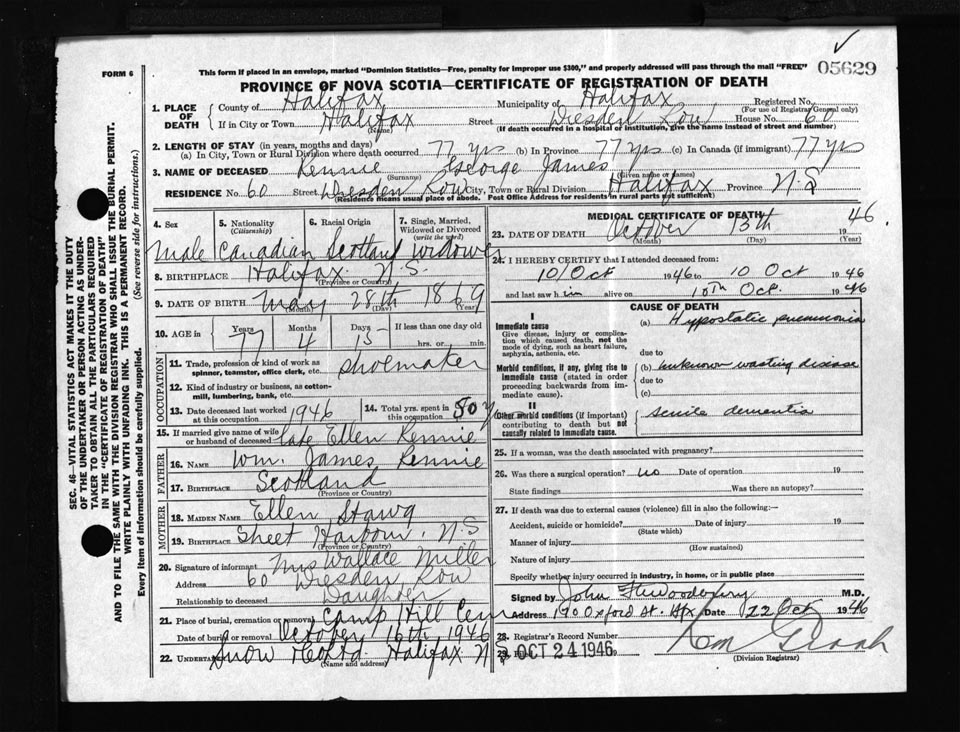 FORM 6
This form if placed in an envelope, marked "Dominion Statistics—Free, penalty for improper use $300," and properly addressed will pass through the mail "FREE"
05629
PROVINCE OF NOVA SCOTIA—CERTIFICATE OF REGISTRATION OF DEATH
1. PLACE OF DEATH { County of Halifax Municipality of Halifax Registered No.
(For use of Registrar General only)
If in City or Town Halifax Street Dresden Row House No. 60
(Name) (If death occurred in a hospital or institution, give the name instead of street and number)
2. LENGTH OF STAY (in years, months and days)
(a) In City, Town or Rural Division where death occurred 77 yrs (b) In Province 77 yrs (c) In Canada (if immigrant) 77 yrs
3. NAME OF DECEASED Rennie George James
(Surname) (Given name or names)
RESIDENCE No. 60 Street Dresden Row City, Town or Rural Division Halifax Province N.S
(Residence means usual place of abode. Post Office Address for residents in rural parts not sufficient)
4. Sex 5. Nationality (Citizenship) 6. Racial Origin 7. Single, Married, Widowed or Divorced (write the word)
Male Canadian Scotland Widower
8. BIRTHPLACE Halifax N.S.
(Province or Country)
9. DATE OF BIRTH May 28th 1869
(Month) (Day) (Year)
10. AGE in { Years 77 Months 4 Days 15 If less than one day old
hrs. or min.
OCCUPATION
11. Trade, profession or kind of work as spinner, teamster, office clerk, etc. Shoemaker
12. Kind of industry or business, as cotton-mill, lumbering, bank, etc.
13. Date deceased last worked at this occupation 1946 14. Total yrs. spent in this occupation 50 y
15. If married give name of wife or husband of deceased late Ellen Rennie
FATHER
16. NAME Wm. James Rennie
17. BIRTHPLACE Scotland
(Province or Country)
MOTHER
18. MAIDEN NAME Ellen
19. BIRTHPLACE Sheet Harbour. N.S
(Province or Country)
20. Signature of informant Mrs Wallace Miller
Address 60 Dresden Row
Relationship to deceased Daughter
21. Place of burial, cremation or removal Camp Hill Cem
Date of burial or removal October 16th 1946
22. Undertaker Snow & Co Ltd. Halifax N S
(Name and address)
MEDICAL CERTIFICATE OF DEATH
23. DATE OF DEATH October 13th 1946
(Month) (Day) (Year)
24. I HEREBY CERTIFY that I attended deceased from:
10/Oct 1946 to 10 Oct 1946
and last saw him alive on 10th Oct. 1946
CAUSE OF DEATH
I
Immediate cause
Give disease, injury or complication which caused death, not the mode of dying, such as heart failure, asphyxia, asthenia, etc.
(a) Hypostatic pneumonia
due to
Morbid conditions, if any, giving rise to immediate cause (stated in order proceeding backwards from immediate cause).
(b) unknown wasting disease
due to
(c)
II
Other morbid conditions (if important) contributing to death but not causally related to immediate cause.
senile dementia
25. If a woman, was the death associated with pregnancy?
26. Was there a surgical operation? no Date of operation 19
State findings Was there an autopsy?
27. If death was due to external causes (violence) fill in also the following:—
Accident, suicide or homicide? Date of injury 19
(State which)
Manner of injury
(How sustained)
Nature of injury
Specify whether injury occurred in industry, in home, or in public place
Signed by John M.D.
Address 170 Oxford St. Hfx Date 22 Oct 1946
28. Registrar's Record Number
29. OCT 24 1946
(Division Registrar)
SEC. 46—VITAL STATISTICS ACT MAKES IT THE DUTY
OF THE UNDERTAKER OR PERSON ACTING AS UNDER-
TAKER TO OBTAIN ALL THE PARTICULARS REQUIRED
IN THE "CERTIFICATE OF REGISTRATION OF DEATH"
AND TO FILE THE SAME WITH THE DIVISION REGISTRAR WHO SHALL ISSUE THE BURIAL PERMIT.
WRITE PLAINLY WITH UNFADING INK. THIS IS A PERMANENT RECORD.
Every item of information should be carefully supplied. (See reverse side for instructions.)